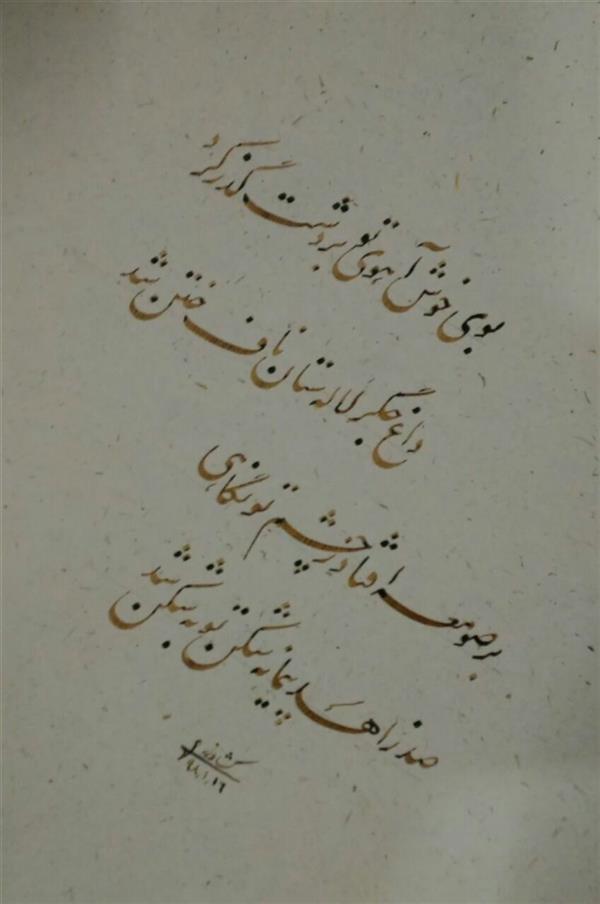 بوی خوش آهوی تو بر دشت گذر کرد
داغ جگر لاله ستان ناف ختن شد
بر صومعه افتاد ز چشم تو نگاهی
صد زاهد پیمانه شکن توبه شکن شد
۹۸.۱.۱۶